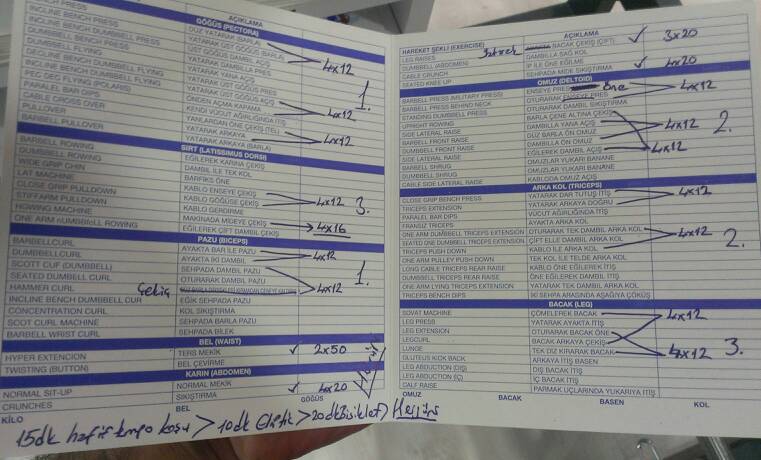 AÇIKLAMA
BENCH PRESS
INCLINE BENCH PRESS
INCLINE BENCH DUMBBELL PRESS
DUMBBELL FLYING
DECLINE BENCH DUMBBELL FLYING
INCLINE BENCH DUMBBELL FLYING
PEC DEC FLYING (POLARIS)
PARALEL BAR DIPS
CABLE CROSS OVER
PULLOVER
BARBELL PULLOVER
GÖĞÜS (PECTORA)
DÜZ YATARAK (BARLA)
YATARAK ÜST GÖĞÜS
ÜST GÖĞÜS DAMBIL
YATARAK DAMBILLA PRES
YATARAK YANA AÇIŞ
YATARAK ALT GÖĞÜS AÇIŞ
YATARAK ÜST GÖĞÜS AÇIŞ
ÖNDEN AÇMA KAPAMA
KENDİ VÜCUT AĞIRLIĞINDA İTİŞ
YANLARDAN ÖNE ÇEKİŞ (TEL)
YATARAK ARKAYA
YATARAK ARKAYA (BARLA)
4x12
4x12
4x12
1.
SIRT (LATISSIMUS DORSI)
BARBELL ROWING EĞİLEREK KARINA ÇEKİŞ
DUMBBELL ROWING DAMBIL İLE TEK KOL
WIDE GRIP CHIN BARFİKS ÖNE
LAT MACHINE KABLO ENSEYE ÇEKİŞ
CLOSE GRIP PULLDOWN KABLO GÖĞÜSE ÇEKİŞ 4x12 3.
STIFFARM PULLDOWN KABLO GERDİRME
ROWING MACHINE MAKİNADA MİDEYE ÇEKİŞ 4x16
ONE ARM DUMBBELL ROWING EĞİLEREK ÇİFT DAMBIL ÇEKİŞ
PAZU (BICEPS)
BARBELLCURL AYAKTA BAR İLE PAZU
DUMBBELLCURL AYAKTA İKİ DAMBIL 4x12
SCOTT CUF (DUMBBELL) SEHPADA DAMBIL PAZU
SEATED DUMBELL CURL OTURARAK DAMBIL PAZU 1.
HAMMER CURL Çekiç 4x12
INCLINE BENCH DUMBBELL CUR EĞİK SEHPADA PAZU
CONCENTRATION CURL KOL SIKIŞTIRMA
SOOT CURL MACHINE SEHPADA BARLA PAZU
BARBELL WRIST CURL SEHPADA BİLEK
BEL (WAIST)
HYPER EXTENCION TERS MEKİK ✓ 2x50
TWISTING (BUTTON) BEL ÇEVİRME
KARIN (ABDOMEN)
NORMAL SIT-UP NORMAL MEKİK ✓ 4x20
CRUNCHES SIKIŞTIRMA
KİLO BEL GÖĞÜS
15dk hafif tempo koşu > 10 dk Eliptik > 20dk Bisiklet >
HAREKET ŞEKLİ (EXERCISE) AÇIKLAMA
LEG RAISES BACAK ÇEKİŞ (ÇİFT) ✓ 3x20
DUMBBELL (ABDOMEN) DAMBILLA SAĞ KOL
CABLE CRUNCH İP İLE ÖNE EĞİLME
SEATED KNEE UP SEHPADA MİDE SIKIŞTIRMA ✓ 4x20
OMUZ (DELTOID)
BARBELL PRESS (MILITARY PRESS) ENSEYE PRES öne
BARBELL PRESS BEHIND NECK OTURARAK ENSEYE PRES 4x12
STANDING DUMBBELL PRESS OTURARAK DAMBIL SIKIŞTIRMA
UPRIGHT ROWING BARLA ÇENE ALTINA ÇEKİŞ
SIDE LATERAL RAISE DAMBILLA YANA AÇIŞ 4x12 2.
BARBELL FRONT RAISE DÜZ BARLA ÖN OMUZ
DUMBBELL FRONT RAISE DAMBILLA ÖN OMUZ
SIDE LATERAL RAISE EĞİLEREK DAMBIL AÇIŞ 4x12
BARBELL SHRUG OMUZLAR YUKARI BANANE
DUMBBELL SHRUG OMUZLAR YUKARI BANANE
CABLE SIDE LATERAL RAISE KABLODA OMUZ AÇIŞ
ARKA KOL (TRICEPS)
CLOSE GRIP BENCH PRESS YATARAK DAR TUTUŞ İTİŞ
TRICEPS EXTENSION YATARAK ARKAYA DOĞRU 4x12
PARALEL BAR DIPS VÜCUT AĞIRLIĞINDA İTİŞ
FRANSIZ TRICEPS AYAKTA ARKA KOL
ONE ARM DUMBBELL TRICEPS EXTENSION OTURARAK TEK DAMBIL ARKA KOL
SEATED ONE DUMBBELL TRICEPS EXTENSION ÇİFT ELLE DAMBIL ARKA KOL 4x12 2.
TRICEPS PUSH DOWN KABLO İLE ARKA KOL
ONE ARM PULLEY PUSH DOWN TEK KOL İLE TELDE ARKA KOL
LONG CABLE TRICEPS REAR RAISE KABLO ÖNE EĞİLEREK İTİŞ
DUMBBELL TRICEPS REAR RAISE ÖNE EĞİLEREK DAMBIL İTİŞ
ONE ARM LYING TRICEPS EXTENSION YATARAK TEK DAMBIL ARKA KOL
TRICEPS BENCH DIPS İKİ SEHPA ARASINDA AŞAĞIYA ÇÖKÜŞ
BACAK (LEG)
SOVAT MACHINE ÇÖMELEREK BACAK 4x12
LEG PRESS YATARAK AYAKTA İTİŞ
LEG EXTENSION OTURARAK BACAK ÖNE
LEGCURL BACAK ARKAYA ÇEKİŞ
LUNGE TEK DİZ KIRARAK BACAK 4x12 3.
GLUTEUS KICK BACK ARKAYA İTİŞ BASEN
LEG ABDUCTION (DIŞ) DIŞ BACAK İTİŞ
LEG ABDUCTION (İÇ) İÇ BACAK İTİŞ
CALF RAISE PARMAK UÇLARINDA YUKARIYA İTİŞ
OMUZ BACAK BASEN KOL